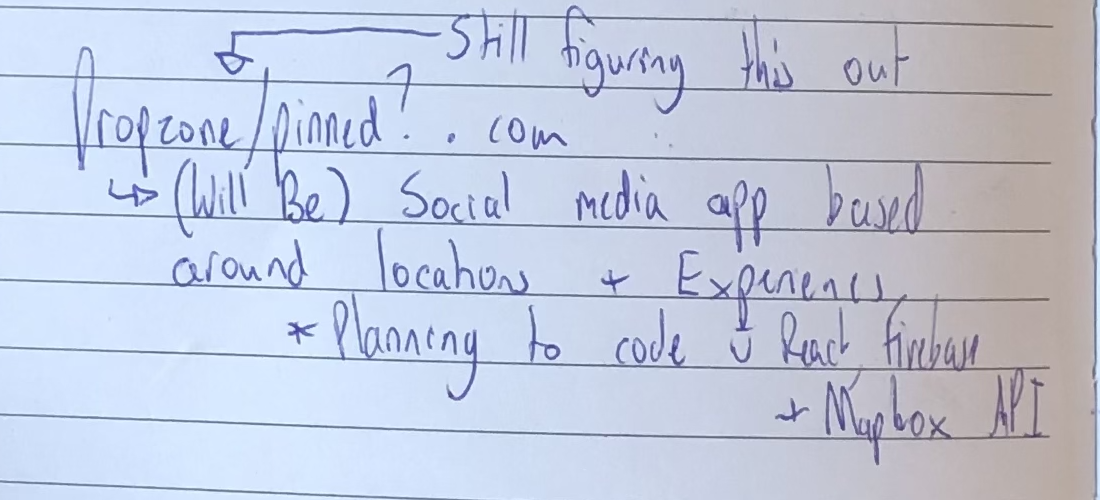 Still figuring this out
Dropzone/pinned? . com
↳ (Will Be) Social media app based
around locations + Experiences
* Planning to code w̄ React, firebase
+ Mapbox API